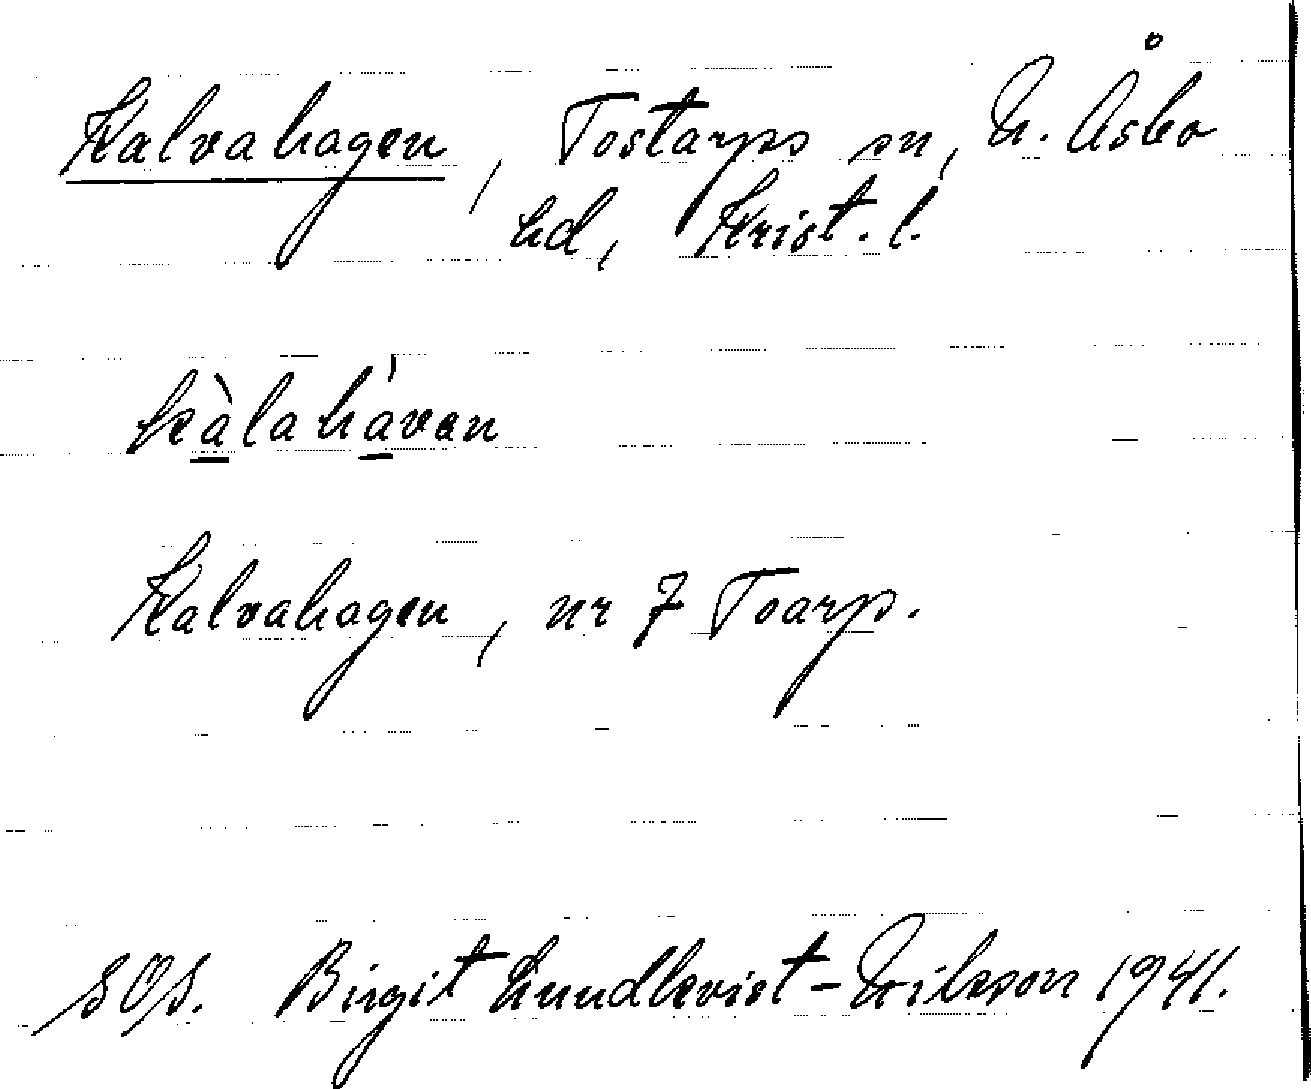 Kalvahagen, Tostarps sn, N. Åsbo
hd, Krist. l.
kàlahávan
Kalvahagen, nr 7 Toarp.
SOS. Birgit Lundkvist-Nilsson 1941.